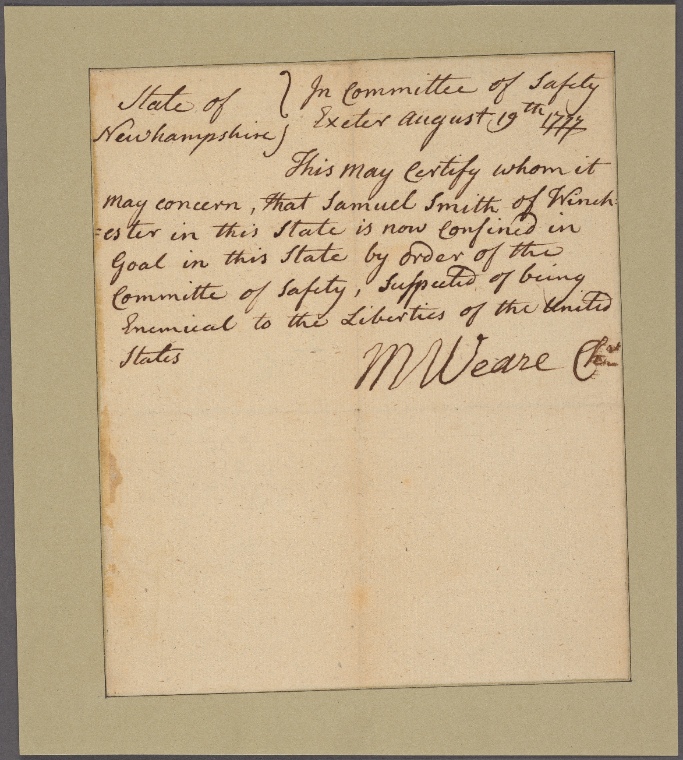 State of } In Committee of Safety
Newhampshire } Exeter August 19th 1777
This may Certify whom it
may concern, that Samuel Smith of Winch-
=ester in this State is now Confined in
Goal in this State by order of the
Committe of Safety, Suspected of being
Enemical to the Liberties of the United
States
M Weare